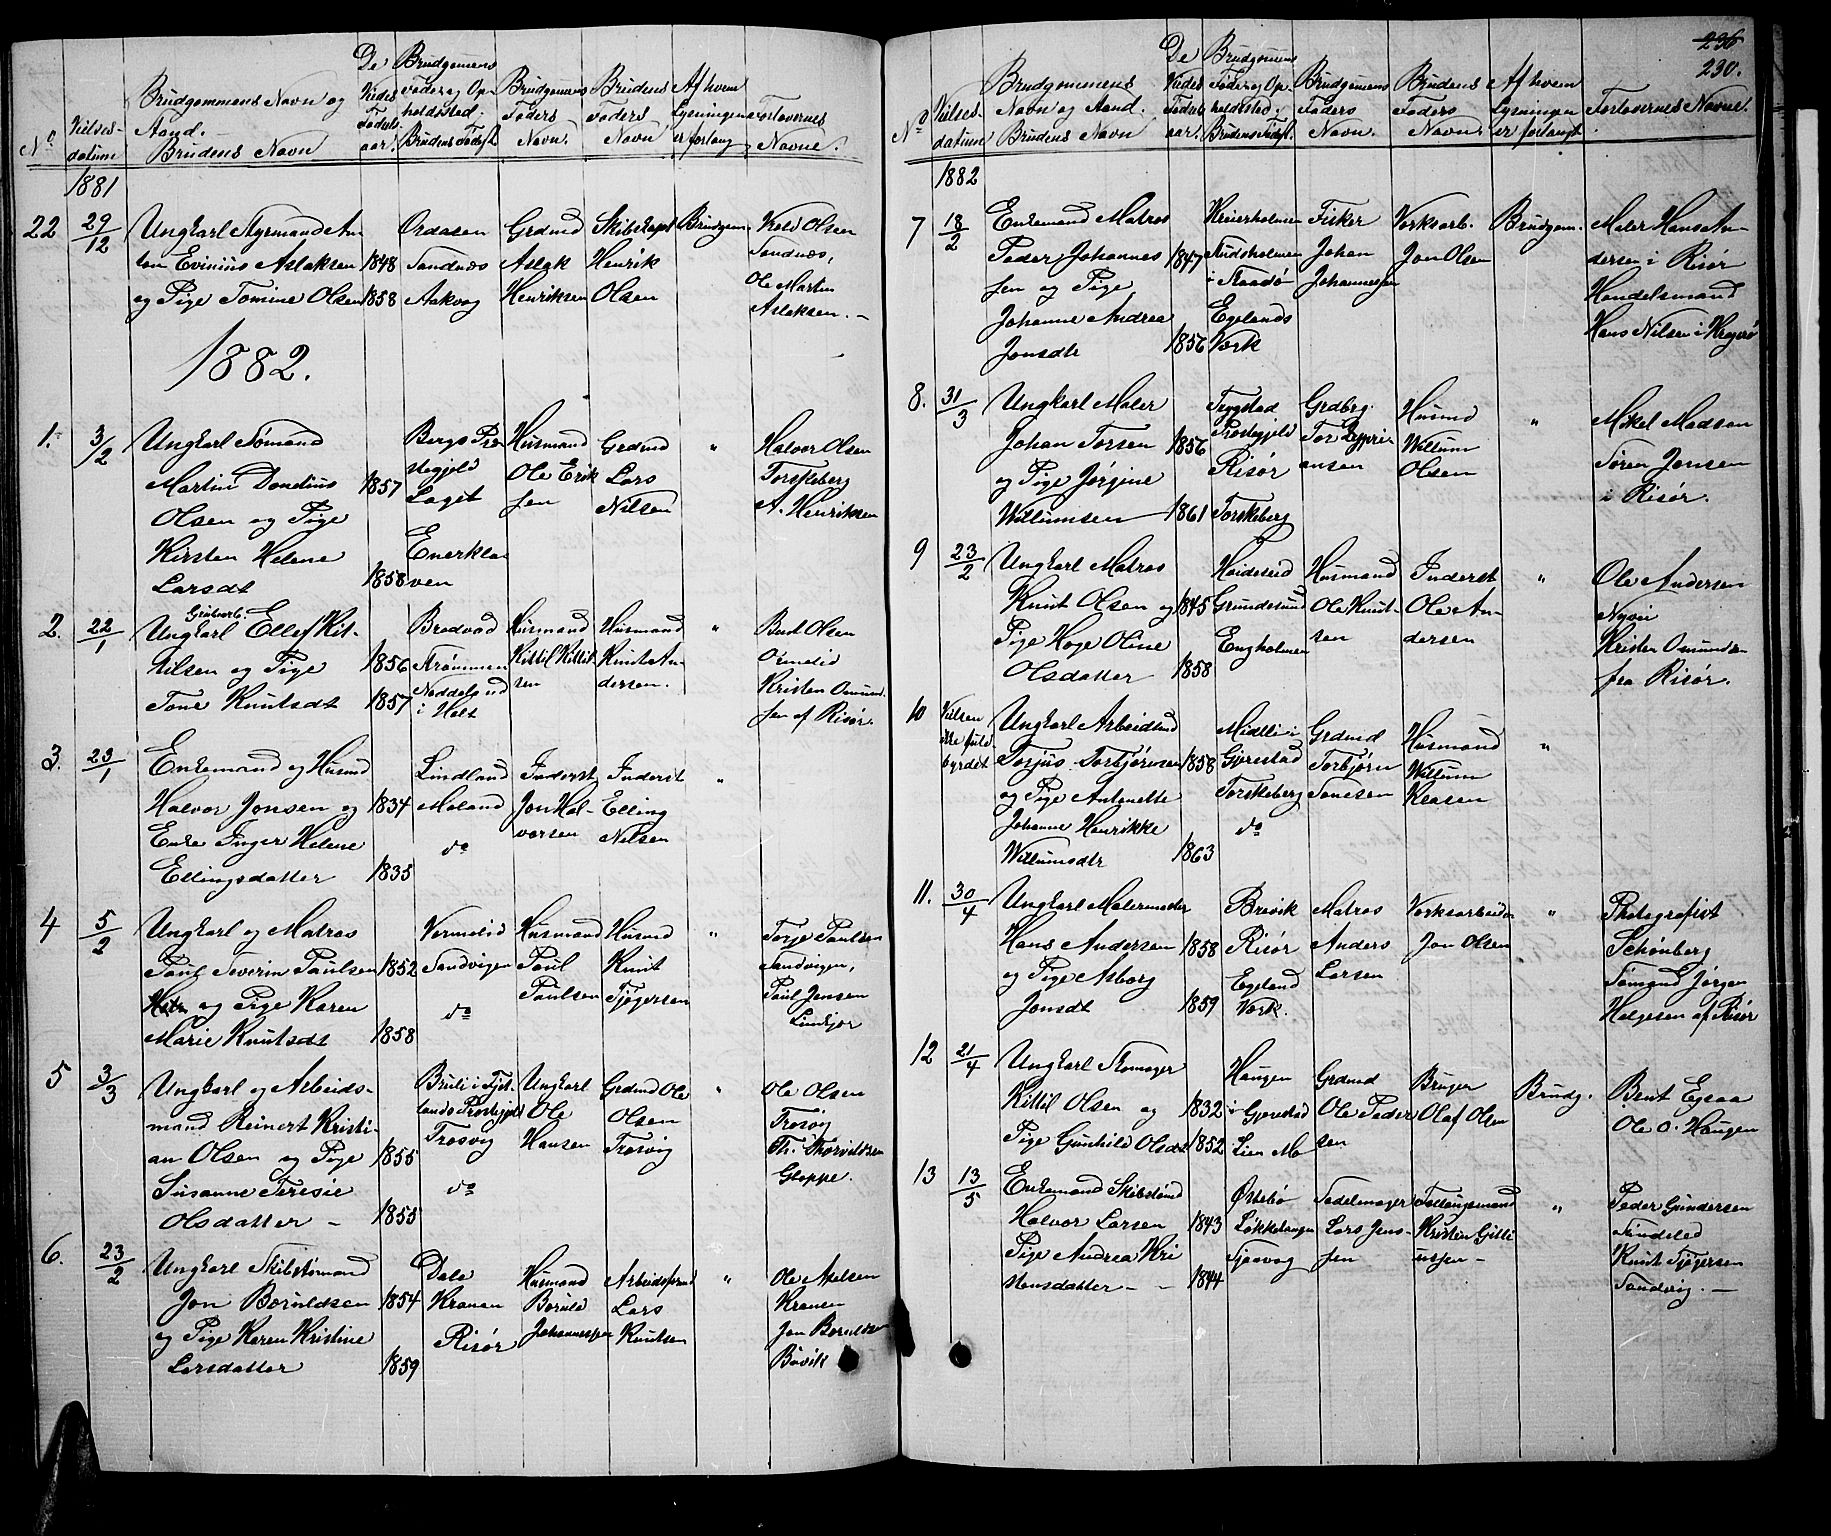 No
Vielses-
datum
Brudgommens Navn og
Stand.
Brudens Navn
De
Viedes
Fødsels
aar.
Brudgomens
Føde og Op-
holdssted.
Brudens Fødest.
Brudgomens
Faders
Navn.
Brudens
Faders
Navn
Af hvem
Lysningen
er forlang
Forlovernes
Navne.
1881
22 29/12
Ungkarl Styrmand An-
ton Evinius Aslaksen 1848
og Pige Tomine Olsen 1858
Ordaasen
Sandnæs
Aakvog
Grdmd
Aslak
Henriksen
Skibskapt
Henrik
Olsen
Brudgom.
Keld Olsen
Sandnæs,
Ole Martin
Aslaksen. –
1882.
1. 3/2
Ungkarl Sømand
Martin Dondius 1857
Olsen og Pige
Kirsten Helene
Larsdt 1858
Bergs Præ-
stegjeld
Laget
Enerkla-
ven
Husmand
Ole Erik
sen
Grdmd
Lars
Nilsen
"
Halvor Olsen
Torskeberg
A. Henriksen
2. 22/1
Grubearb.
Ungkarl Ellef Kit-
tilsen og Pige 1856
Tone Knutsdt 1857
Brodvad
Strømmen
Noddeland
i Holt
Husmand
Kittil Kittil-
sen
Husmand
Knut An-
dersen.
"
Bent Olsen
Ormelid
Kristen Omund-
sen af Risør.
3. 23/1
Enkemand og Husmd
Halvor Jonsen og 1834
Enke Inger Helene
Ellingsdatter 1835
Lindland
Moland
do
Inderst
Jon Hal-
vorsen
Inderst
Elling
Nilsen
"
4 5/2
Ungkarl og Matros
Paul Severin Paulsen 1852
og Pige Karen
Marie Knutsdt 1858
Vormelid
Sandvigen
do
Husmand
Paul
Paulsen
Husmd
Knut
Tjøgersen
"
Torje Paulsen
Sandvigen,
Paul Jensen
Lindkjær
5 3/3
Ungkarl og Arbeids-
mand Reinert Kristi-
an Olsen og Pige 1855
Susanne Teresie
Olsdatter – 1855
Bruli i Tjel-
lands Prostegjeld
Trosvig
do
Ungkarl
Ole
Hansen
Grdmd Ole
Olsen
Trosvig
"
Ole Olsen
Trosvg
Th. Thorvildsen
Gloppe.
6. 23/2
Ungkarl Skibstømand
Jon Boruldsen 1854
og Pige Karen Kristine
Larsdatter 1859
Dale
Kranen
Risør
Husmand
Boruld
Johannessen
Arbeidsformd
Lars
Knutsen
"
Ole Axelsen
Kranen
Jon Boruldsen
Bøvik
236
230.
No
Vielses-
datum
Brudgommens
Navn og Stand.
Brudens Navn
De
Viedes
Fødsels
aar.
Brudgomens
Føde og Op-
holdssted.
Brudens Fødest.
Brudgomens
Faders
Navn.
Brudens
Faders
Navn.
Af hvem
Lysningen
er forlangt
Forlovernes Navne.
1882
7 18/2
Enkemand Matros
Peder Johannes 1847
sen og Pige
Johanne Andrea
Jonsdtr 1856
Kreierholmen
Skudsholmen
i Skaadø
Egelands
Værk
Fisker
Johan
Johannessen
Værksarb.
Jon Olsen
Brudgom.
Maler Hans An-
dersen i Risør
Handelsmand
Hans Nilsen i Kragerø
8. 31/3
Ungkarl Maler
Johan Torsen 1856
og Pige Jørgine
Willumsen 1861
Trygstad
Prostegjeld
Risør
Torskeberg
Grdbrg.
Tor
ansen
Husmd
Willum
Olsen
"
Mikel Madsen
Søren Jensen
i Risør.
9 23/2
Ungkarl Matros
Knut Olsen og 1845
Pige Hage Oline
Olsdatter 1858
Haideseid
Grundesund
Engholmen
Husmand
Ole Knut-
sen
Inderst
Ole An-
dersen
"
Ole Andersen
Nyvei
Kristen Omundsen
fra Risør.
10 Vielsen
ikke fuld-
byrdet
Ungkarl Arbeidsmd
Torjus Torbjørnsen 1858
og Pige Antonette
Johanne Henrikke
Willumsdtr 1863
Midtli i
Gjerestad
Torskeberg
do
Grdmd
Torbjørn
Tonesen
Husmand
Willum
Klasen
"
11. 30/4
Ungkarl Malermester
Hans Andersen 1858
og Pige Asborg
Jonsdt 1859
Brevik
Risør
Egeland
Værk.
Matros
Anders
Larsen
Værksarbeider
Jon Olsen
"
Photografist
Schønberg
Sømand Jørgen
Helgesen af Risør
12 21/4
Ungkarl Skomager
Kittil Olsen og 1832
Pige Gunhild Olsdt 1852
Haugen
i Gjerstad
Lien Mo
Grdmd
Ole Peder
sen
Bruger
Olaf Olsen
Brudg.
Bent Egsaa
Ole O. Haugen
13 13/5
Enkemand Skibstømd
Halvor Larsen 1843
Pige Andrea Kri
stensdatter – – 1844
Østebø
Løkkebangen
Sjøvog
Sadelmager
Lars Jens-
sen
Fattigmand
Kristen Gitli
ussen –
"
Peder Gundersen
Sindsled
Knut Tjøgersen
Sandvig. –